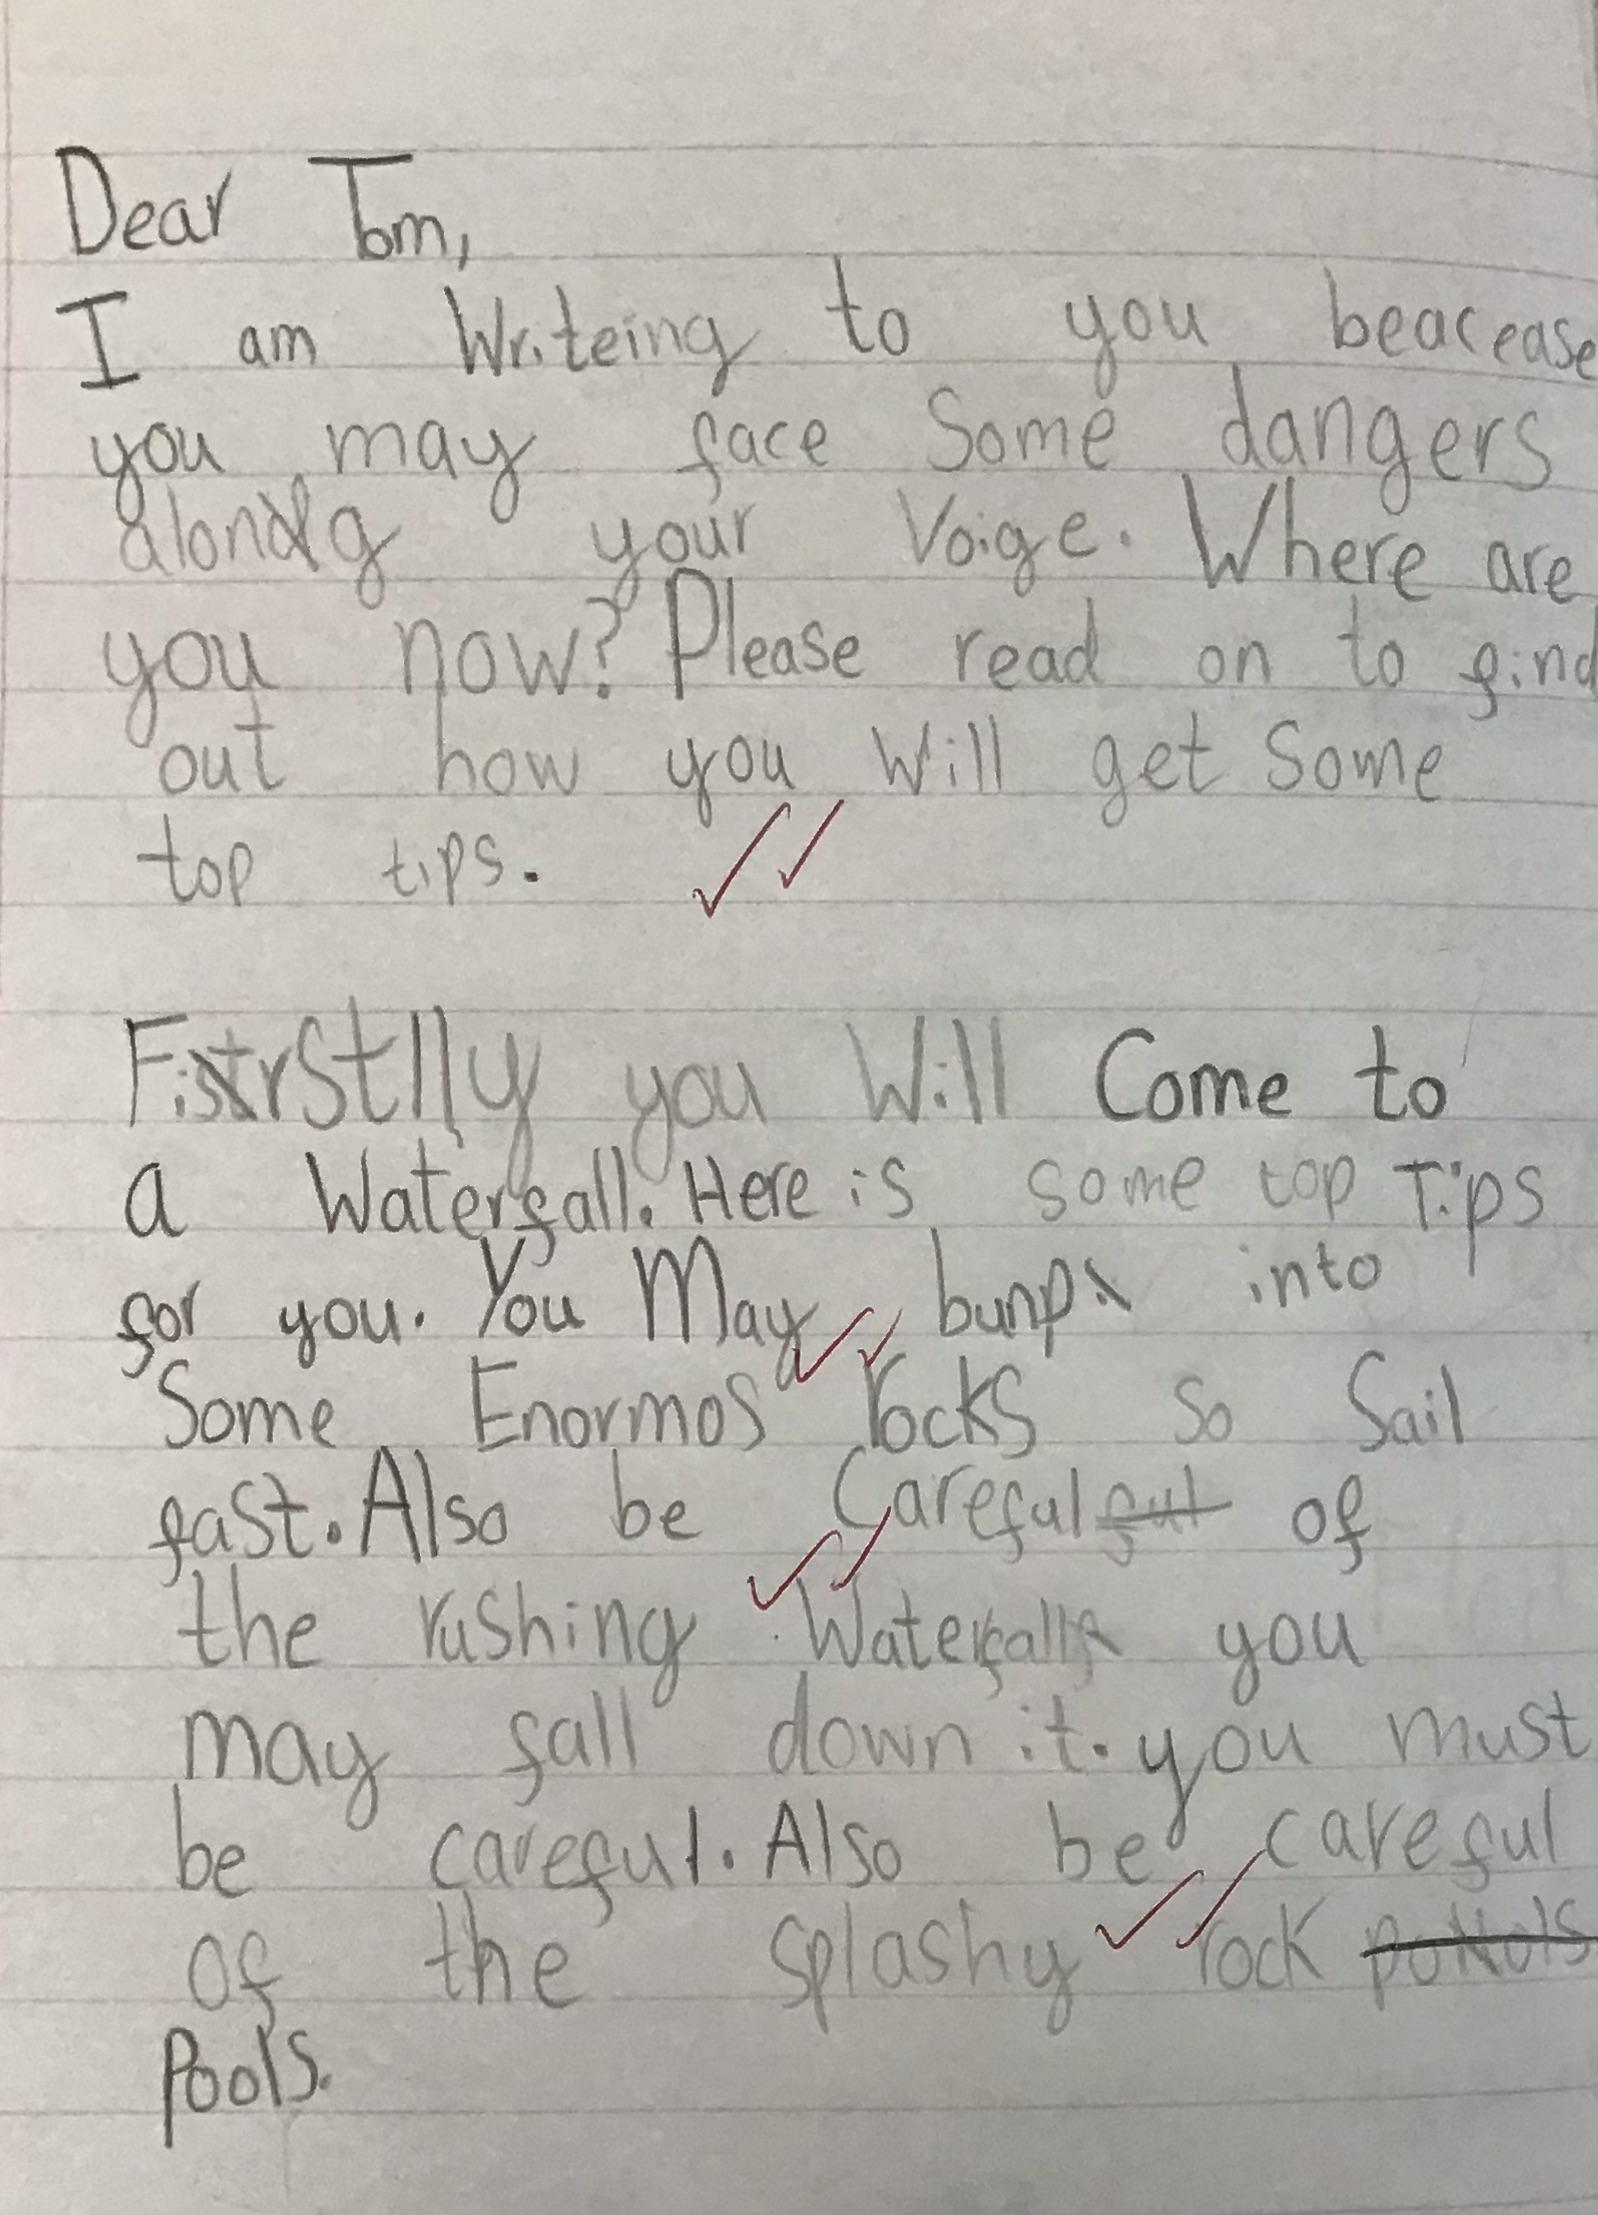 Dear Tom,
I am Writeing to you beacease
you may face Some dangers
along your Voige. Where are
you now? Please read on to find
out how you Will get Some
top tips.
Firstlly you Will Come to
a Waterfall. Here is some top Tips
for you. You May bunp into
Some Enormos rocks so Sail
fast. Also be Careful ful of
the rushing Waterfall you
may fall down it. you must
be careful. Also be careful
of the Splashy rock
Pools.